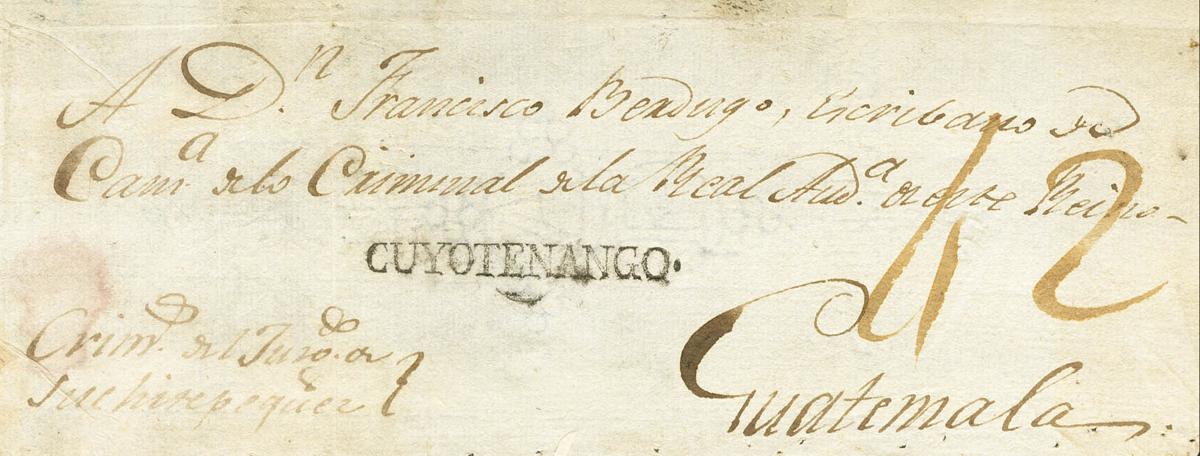 A D.n Francisco Berdugo, Escribano de
Cam.a de lo Criminal de la Real Aud.a de este Reino
CUYOTENANGO.
42
Crim.l del Juzg.do de
Suchitepequez
Guatemala